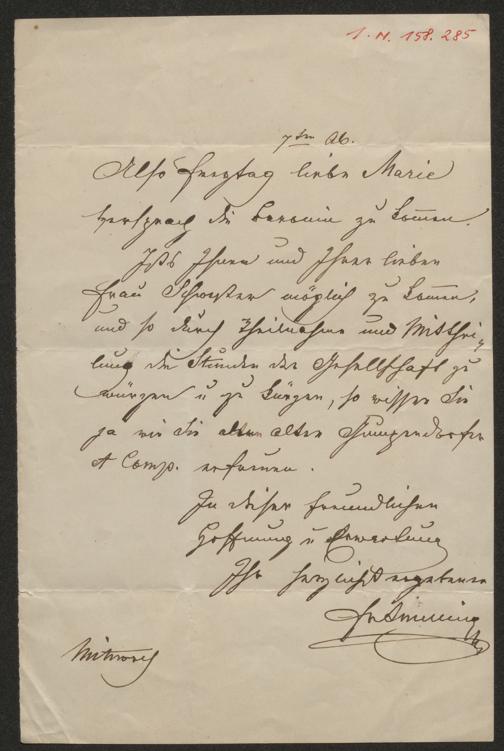 I. N. 158.285
7ten Ab.
Also Freytag liebe Marie
versprach die Baronin zu kommen.
Ists Ihnen und Ihrer lieben
Frau Schwester möglich zu kommen,
und so durch Theilnahme und Mitthei-
lung die Stunden der Gesellschaft zu
würzen u zu kürzen, so wissen Sie
ja wie Sie alten Gumpendorfer
& Comp. erfreuen.
In dieser freundlichen
Hoffnung u Erwartung
Ihr herzlichst ergebener
Mittwoch